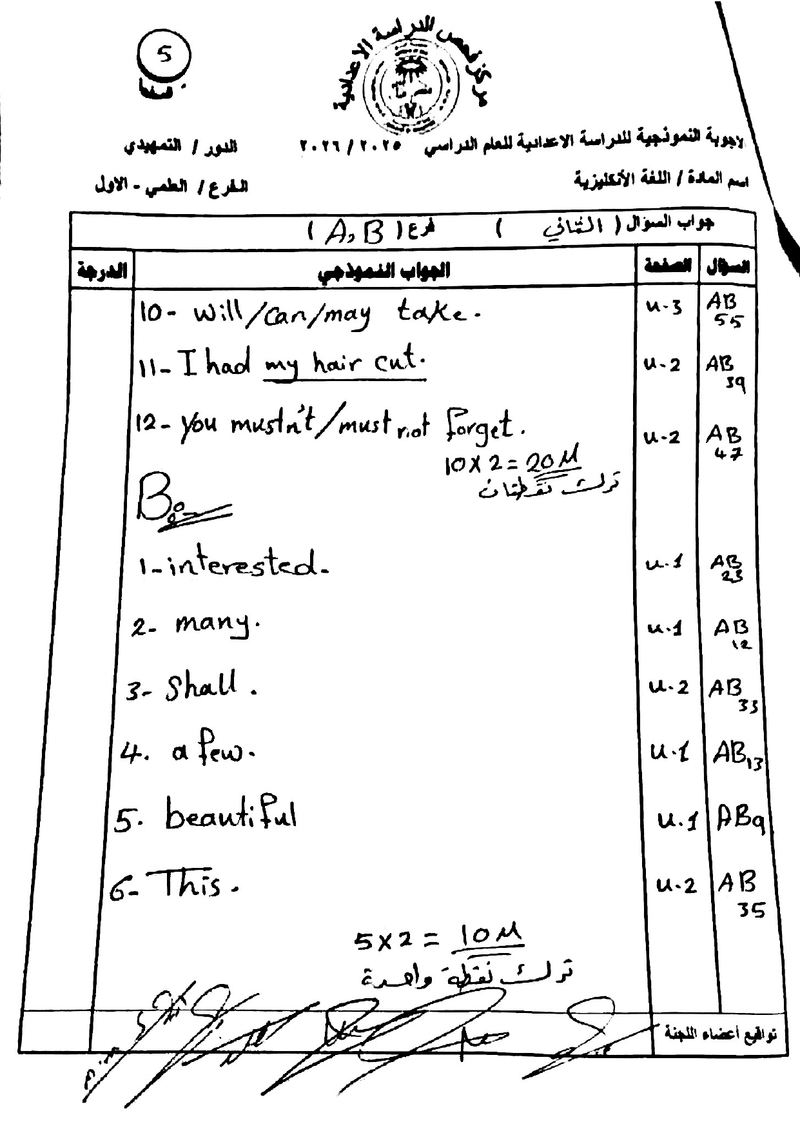 5
صفحة
مركز فحص الدراسة الاعدادية
لاجوبة النموذجية للدراسة الاعدادية للعام الدراسي ٢٠٢٥ / ٢٠٢٦
الدور / التمهيدي
اسم المادة / اللغة الأنكليزية
الفرع / العلمي - الاول
جواب السؤال ( الثاني ) فرع ( A, B )
السؤال الصفحة الجواب النموذجي الدرجة
10- will/can/may take. u-3 AB 55
11- I had my hair cut. u-2 AB 39
12- you mustn't/must not forget. u-2 AB 47
10 x 2 = 20 M
ترك نقطتان
B:-
1- interested. u.1 AB 23
2- many. u.1 AB 12
3- Shall. u-2 AB 33
4. a few. u.1 AB 13
5. beautiful u.1 AB 9
6- This. u-2 AB 35
5 x 2 = 10 M
ترك نقطة واحدة
تواقيع أعضاء اللجنة